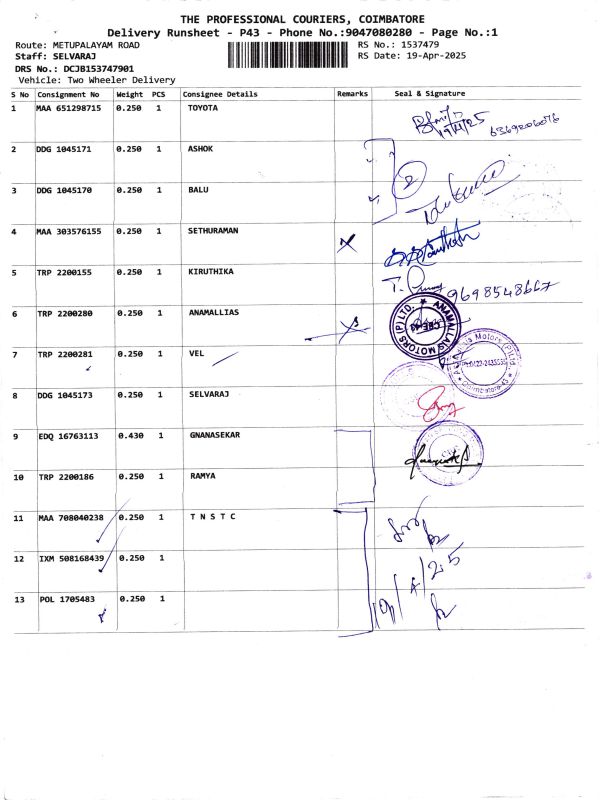 THE PROFESSIONAL COURIERS, COIMBATORE
Delivery Runsheet - P43 - Phone No.:9047080280 - Page No.:1
Route: METUPALAYAM ROAD
RS No.: 1537479
Staff: SELVARAJ
RS Date: 19-Apr-2025
DRS No.: DCJB153747901
Vehicle: Two Wheeler Delivery
S No Consignment No Weight PCS Consignee Details Remarks Seal & Signature
1 MAA 651298715 0.250 1 TOYOTA
19/4/25 6369206076
2 DDG 1045171 0.250 1 ASHOK
3 DDG 1045170 0.250 1 BALU
4 MAA 303576155 0.250 1 SETHURAMAN
5 TRP 2200155 0.250 1 KIRUTHIKA
9698548667
6 TRP 2200280 0.250 1 ANAMALLIAS
ANAMALLAIS MOTORS (P) LTD.
CBE-43
7 TRP 2200281 0.250 1 VEL
8 DDG 1045173 0.250 1 SELVARAJ
9 EDQ 16763113 0.430 1 GNANASEKAR
10 TRP 2200186 0.250 1 RAMYA
11 MAA 708040238 0.250 1 T N S T C
12 IXM 508168439 0.250 1
13 POL 1705483 0.250 1
19/4/25